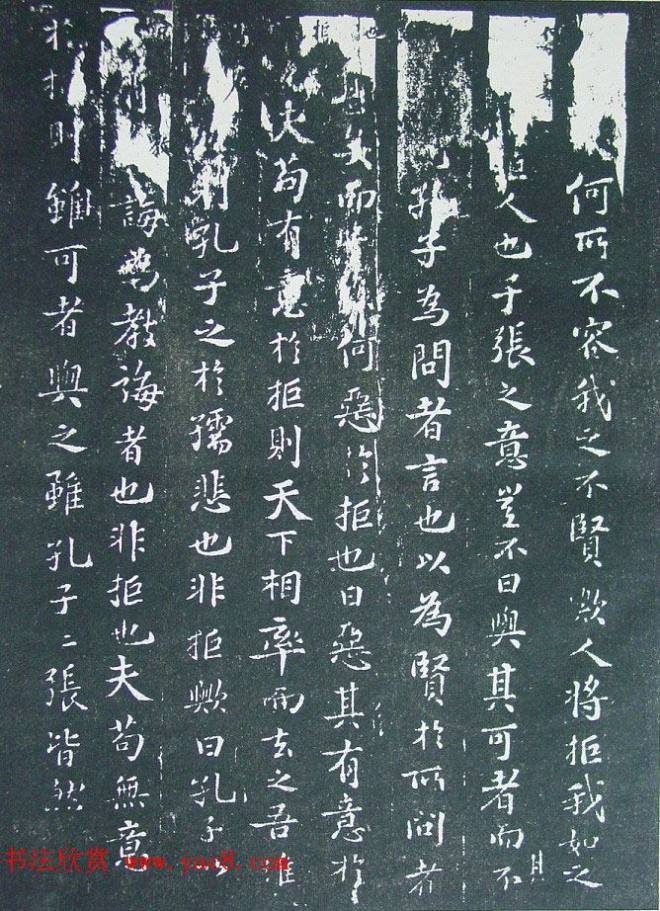 何所不容我之不賢歟人將拒我如之
人也子張之意豈不曰與其可者而不
孔子為問者言也以為賢於所問者
而何惡於拒也曰惡其有意於
夫苟有意於拒則天下相率而去之吾誰
孔子之於孺悲也非拒歟曰孔子
誨為教誨者也非拒也夫苟無意
於拒則雖可者與之雖孔子二張皆然
书法欣赏 www.yac8.com